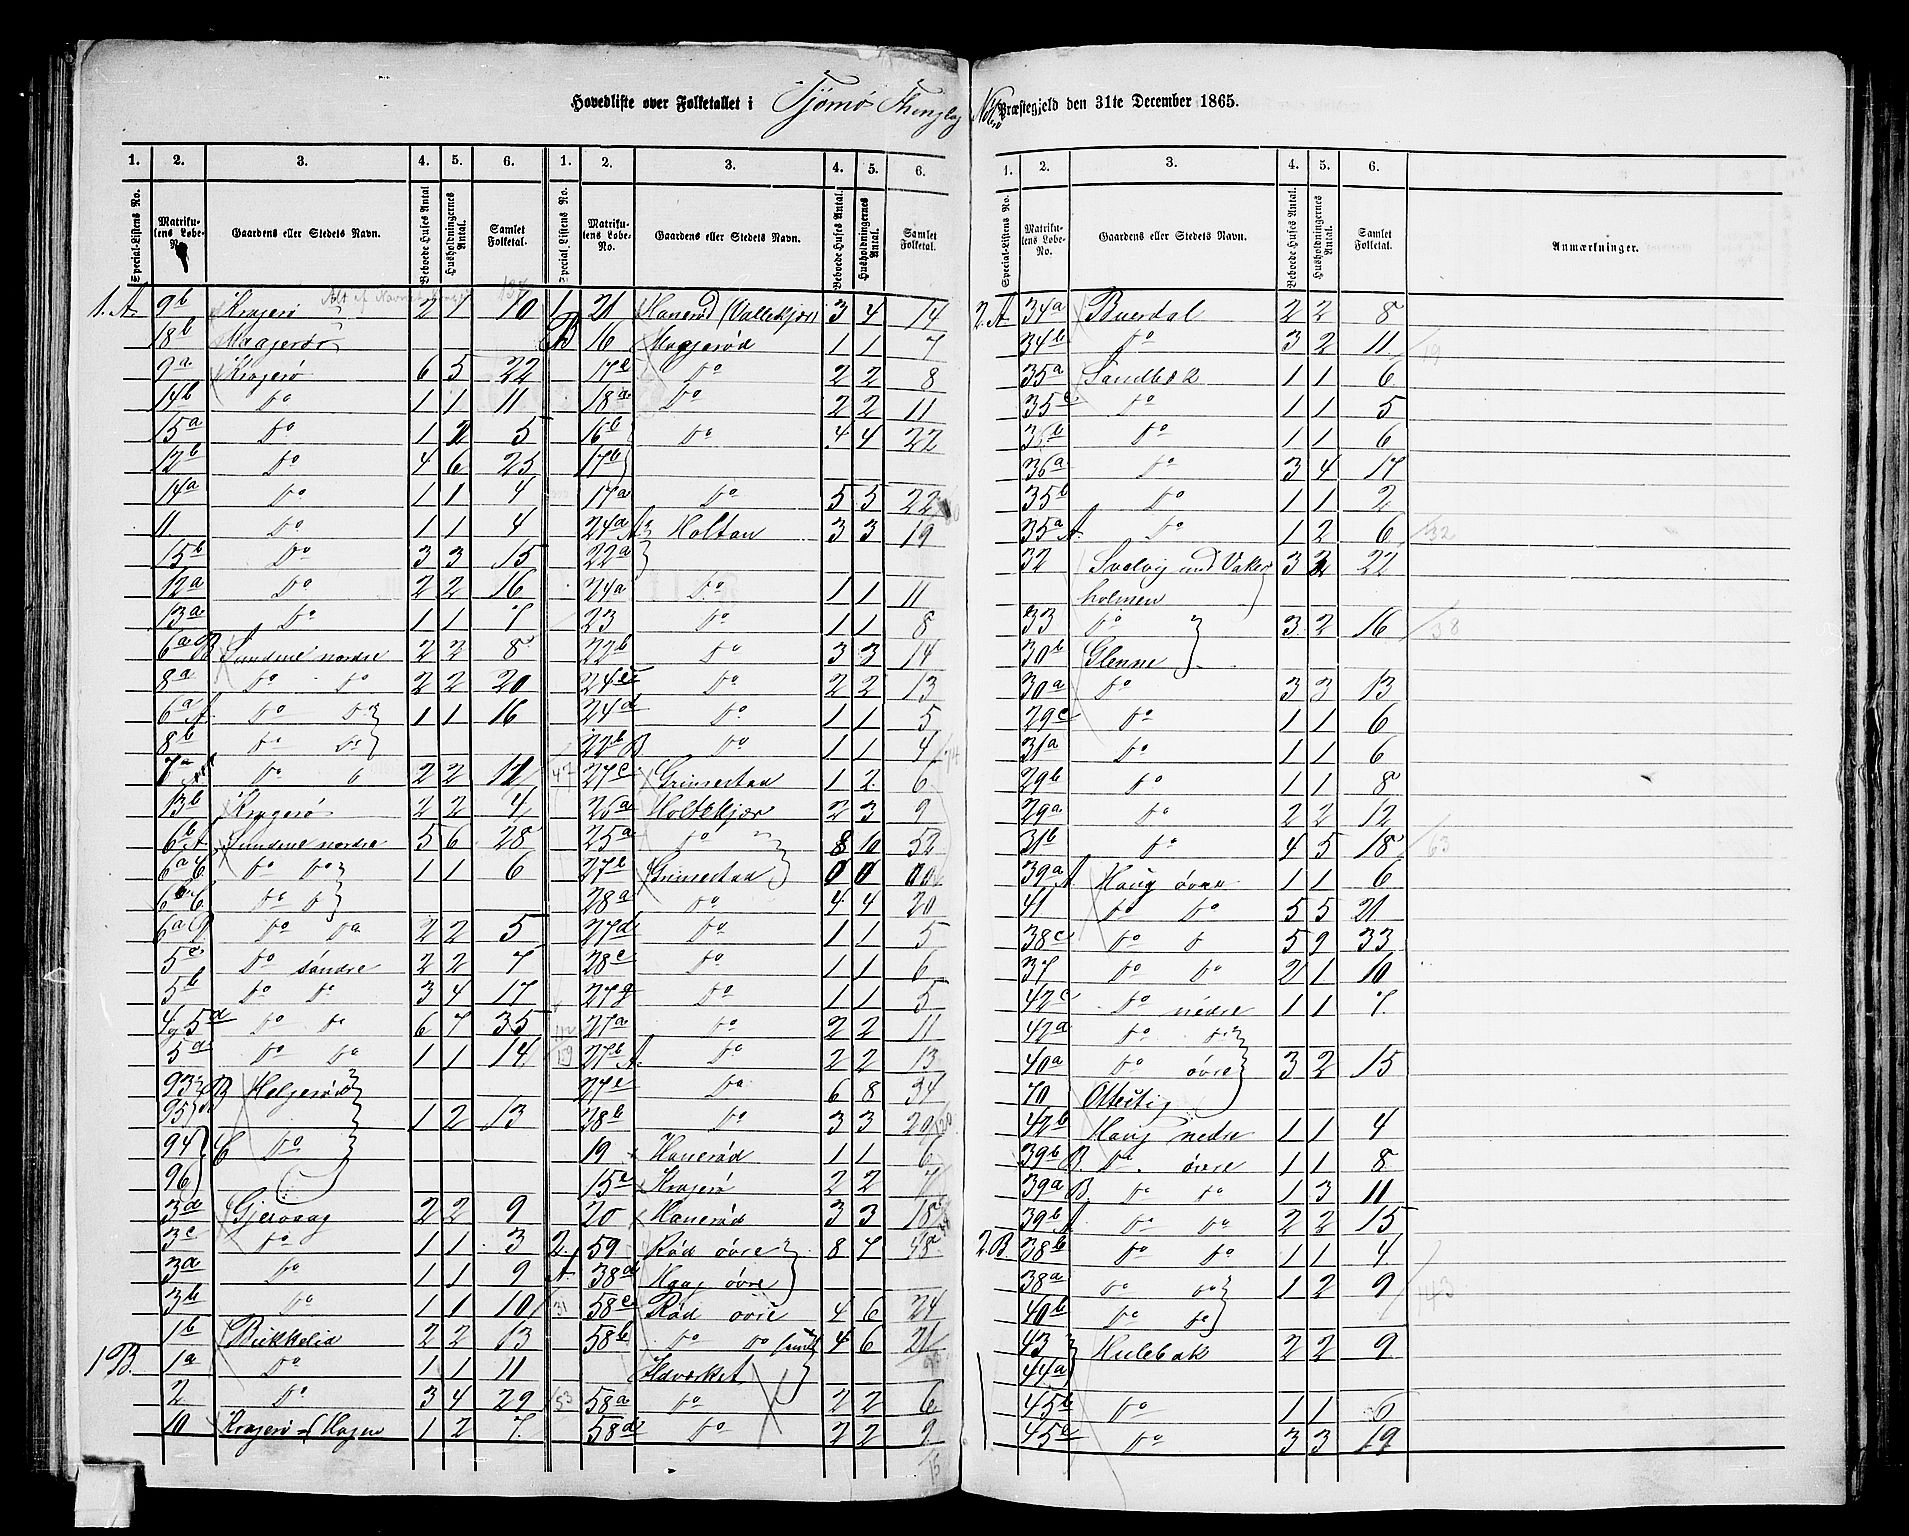 Hovedliste over Folketallet i Tjømø Thinglag Nøterø Præstegjeld den 31te December 1865.
1. 2. 3. 4. 5. 6. 1. 2. 3. 4. 5. 6.
Special-Listens No. Matrikulens Løbe-No. Gaardens eller Stedets Navn. Beboede Huses Antal Husholdningernes Antal. Samlet Folketal. Special-Listens No. Matrikulens Løbe-No. Gaardens eller Stedets Navn. Beboede Huses Antal. Husholdningernes Antal. Samlet Folketal.
1.A. 9b Kragerø 2 7 10
18b Maagerøe
9a Kragerø 6 5 22
14b Do 1 1 11
15a Do 1 2 5
12b Do 4 6 25
14a Do 1 1 4
11 Do 1 1 4
15b Do 3 3 15
12a Do 2 2 16
13a Do 1 1 7
6a B Sundene nordre 2 2 8
8a Do Do 2 2 20
6a A. Do Do 1 1 16
8b Do Do
7a Do 2 2 12
13b Kragerø 2 2 4
6b A Sundene nordre 5 6 28
6a C Do Do 1 1 6
6b C Do Do
6a Do Do 2 2 5
5c Do søndre 2 2 7
5b Do Do 3 4 17
4, 5d Do Do 6 7 35
5a Do Do 1 1 14
93 B Helgerød
95 1 2 13
94 C Do
96
3d Gjervaag 2 2 9
3c Do 1 1 3
3a Do 1 1 9
3b Do 1 1 10
1b Bekkelid 2 2 13
1B. 1a Do 1 1 11
2 Do 3 4 29
10 Kragerø Hagen 1 2 7
1 21 Hanerød (Vallekjær) 3 4 14
B 16 Maagerød 1 1 7
17c Do 2 2 8
18a Do 2 2 11
16b Do 4 4 22
17b
17a Do 5 5 22
24a A. Holtan 3 3 19
22a
24a Do 1 1 11
23 Do 1 1 8
22b Do 3 3 14
24c Do 2 2 13
24d Do 1 1 5
22b B. Do 1 1 4
27c Grimestad 1 2 6
26a Holtekjær 2 3 9
25a Do 8 10 52
27e Grimestad 0 0 00
28a Do 4 4 20
27d Do 1 1 5
28c Do 1 1 6
27g Do 1 1 5
27a Do 2 2 11
27b A. Do 2 2 13
27e Do 6 8 34
28b Do 3 3 20
19 Hanerød 1 1 6
15c Kragerø 2 2 7
20 Hanerød 3 3 18
2. 59 Rød øvre 8 7 48
A. 38d Haug øvre
58c Rød øvre 4 6 24
58b Do Do 4 6 21
Udværket
58a Do 2 2 6
58d Do 2 2 9
1. 2. 3. 4. 5. 6.
Special-Listens No. Matrikulens Løbe-No. Gaardens eller Stedets Navn. Beboede Huses Antal. Husholdningernes Antal. Samlet Folketal. Anmærkninger.
2.A 34a Buerdal 2 2 8
34b Do 3 2 11
35a Sandbæk 1 1 6
35c Do 1 1 5
36b Do 1 1 6
36a Do 3 4 17
35b Do 1 1 2
35a A. Do 1 2 6
32 Svelvig med Vaker 3 22
holmen
33 Do 3 2 16
30b Glenne
30a Do 3 3 13
29c Do 1 1 6
31a Do 1 1 6
29b Do 1 1 8
29a Do 2 2 12
31b Do 4 5 18
39a A. Haug øvre 1 1 6
41 Do Do 5 5 21
38c Do Do 5 9 33
37 Do Do 2 1 10
42c Do nedre 1 1 7
42a Do Do
40a Do øvre 3 2 15
70 Ottestig
42b Haug nedre 1 1 4
39b B. Do øvre 1 1 8
39a B Do Do 1 3 11
39b A. Do Do 2 2 15
2.B. 38b Do Do 1 1 4
38a Do Do 1 2 9
40b Do Do
43 Hulebak 2 2 9
44a
45b Do 1 1 6
45c Do 3 3 19